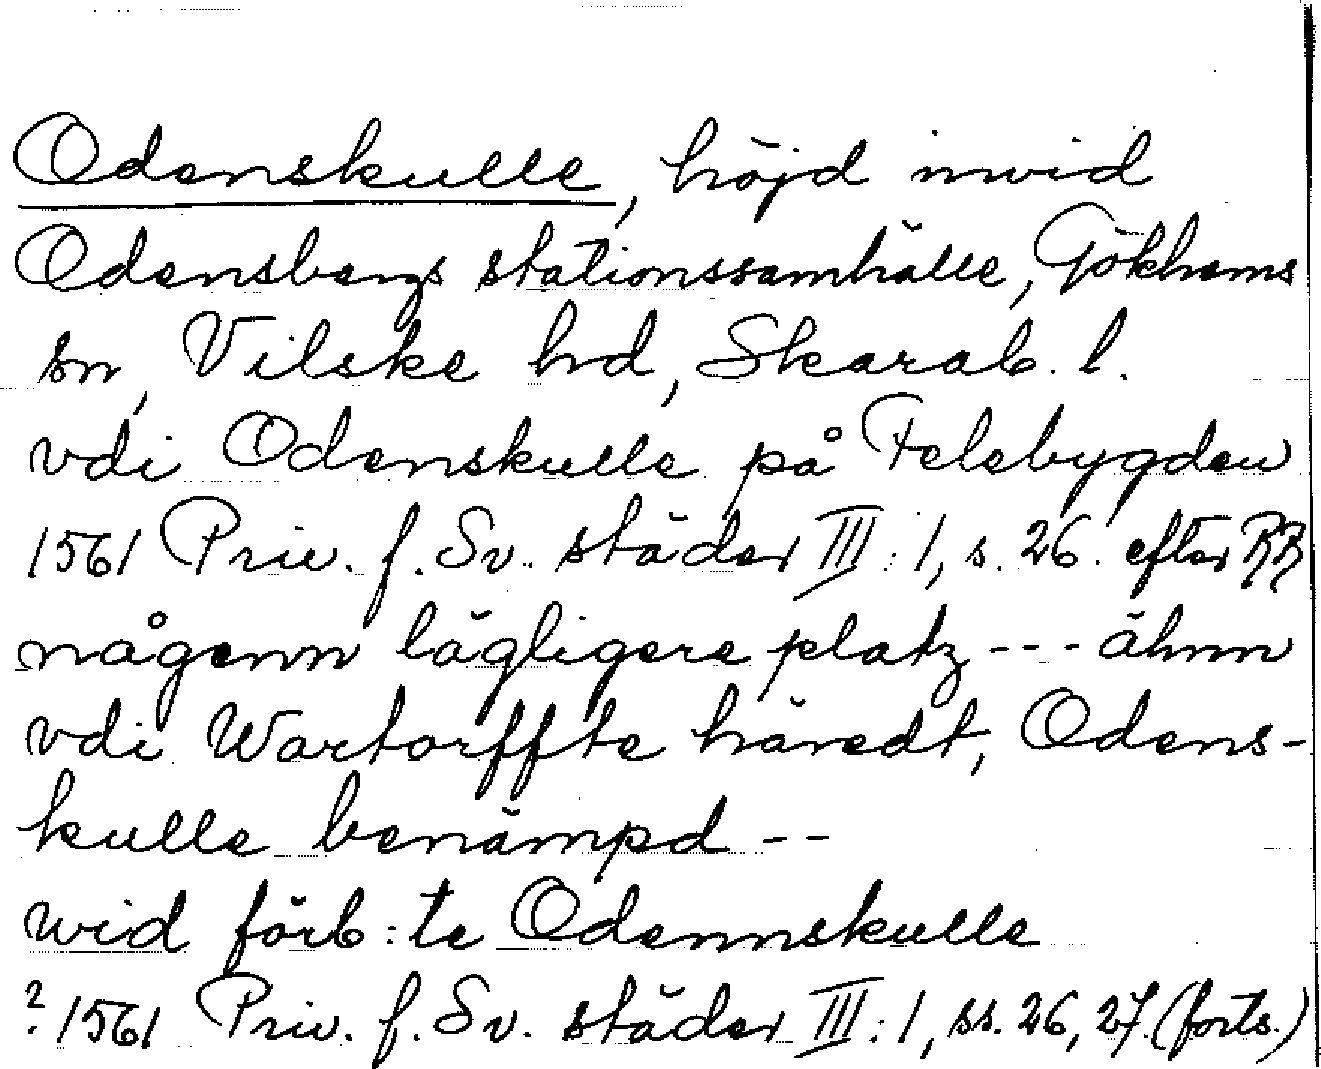 Odenskulle, höjd invid
Odensbergs stationssamhälle, Gökhems
sn, Vilske hd, Skarab. l.
vdi Odenskulle på Felebygden
1561 Priv. f. Sv. städer III: 1, s. 26. efter RR
någenn lägligere platz --- ähnn
vdi Wartorffte häredt, Odens-
kulle benämpd --
wid förb:te Odennskulle
? 1561 Priv. f. Sv. städer III: 1, ss. 26, 27. (forts.)